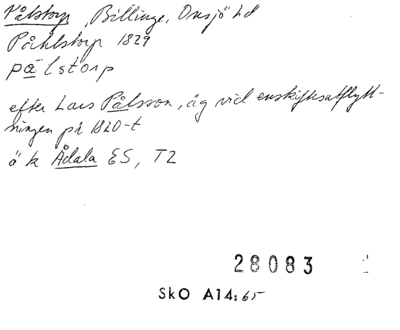 Pålstorp, Billinge, Onsjö hd
Påhlstorp 1829
pålstorp
efter Lars Pålsson, äg vid enskiftesutflytt-
ningen på 1820-t
ö k Ådala ES, T2
28083
SkO A14:65